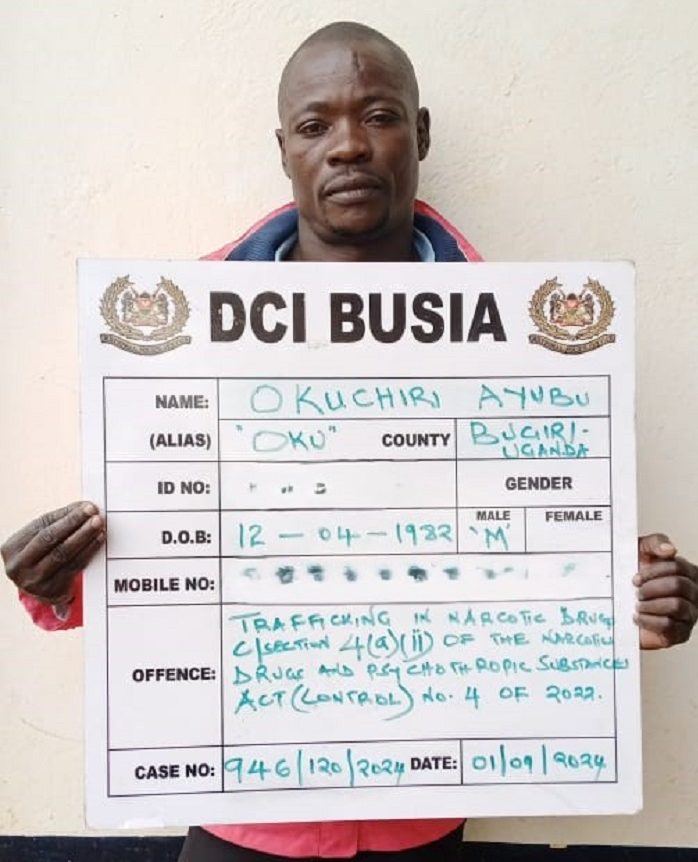 DCI BUSIA
NAME: OKUCHIRI AYUBU
(ALIAS) "OKU" COUNTY BUGIRI-
UGANDA
ID NO: GENDER
D.O.B: 12 - 04 - 1982 MALE "M" FEMALE
MOBILE NO:
OFFENCE: TRAFFICKING IN NARCOTIC DRUGS
C/SECTION 4(a)(ii) OF THE NARCOTIC
DRUGS AND PSYCHOTHROPIC SUBSTANCES
ACT (CONTROL) NO. 4 OF 2022.
CASE NO: 946/120/2024 DATE: 01/09/2024